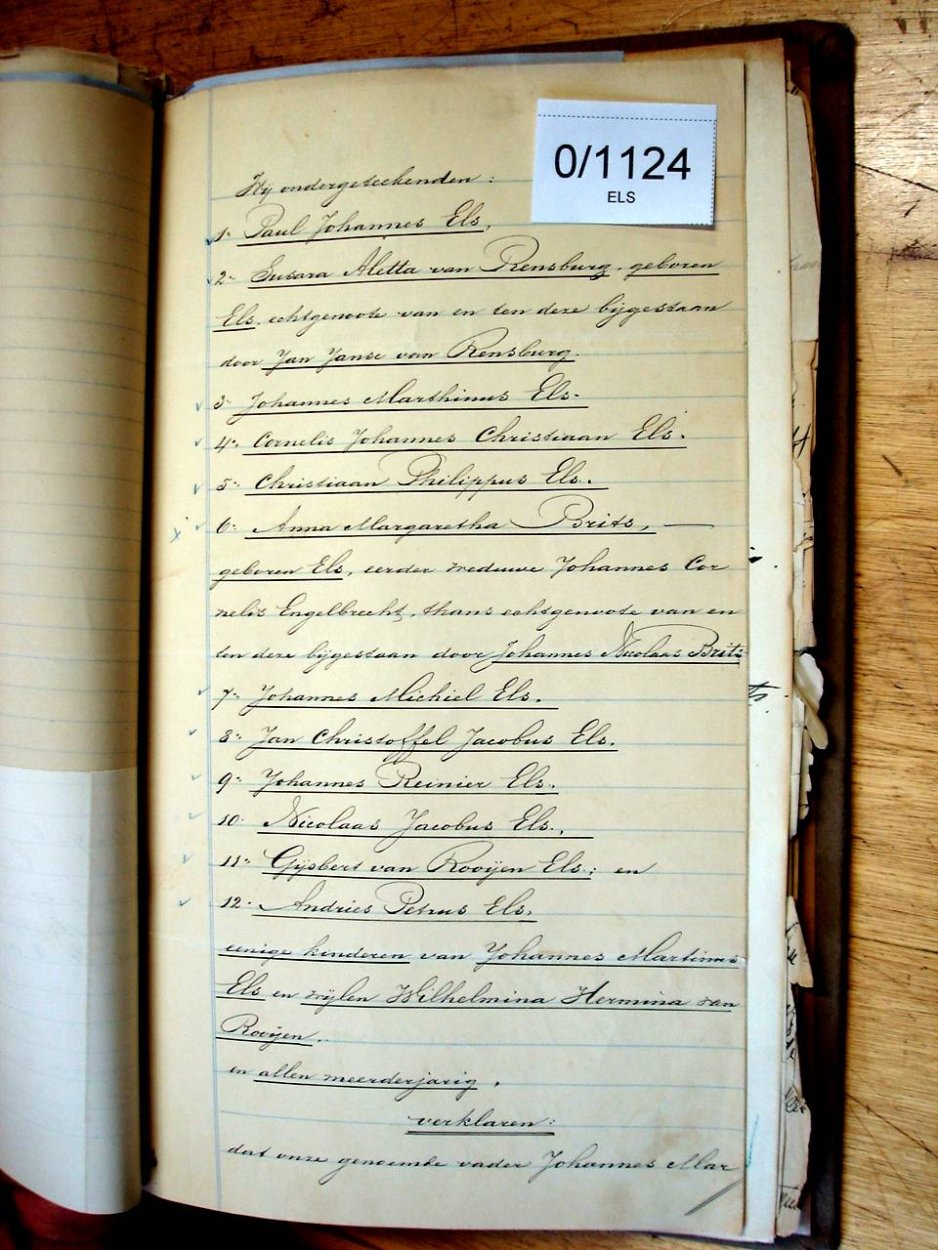 0/1124
ELS
Wij ondergeteekenden :
1. Paul Johannes Els,
2. Susara Aletta van Rensburg, geboren
Els, echtgenoote van en ten deze bijgestaan
door Jan Janse van Rensburg.
3. Johannes Marthinus Els.
4. Cornelis Johannes Christiaan Els.
5. Christiaan Philippus Els.
6. Anna Margaretha Brits, —
geboren Els, eerder weduwe Johannes Cor
nelis Engelbrecht, thans echtgenoote van en
ten deze bijgestaan door Johannes Nicolaas Brits
7. Johannes Michiel Els.
8. Jan Christoffel Jacobus Els.
9. Johannes Reinier Els.
10. Nicolaas Jacobus Els.,
11. Gijsbert van Rooijen Els; en
12. Andries Petrus Els.
eenige kinderen van Johannes Martinus
Els en wijlen Wilhelmina Hermina van
Rooijen.
en allen meerderjarig,
verklaren:
dat onze genoemde vader Johannes Mar